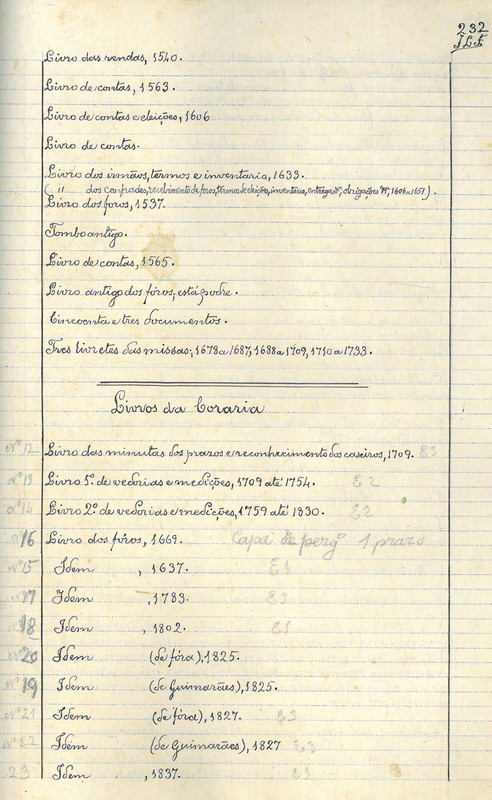 232
Livro das rendas, 1540.
Livro de contas, 1563.
Livro de contas e eleições, 1606
Livro de contas.
Livro dos irmãos, termos e inventario, 1633.
( " dos confrades, recebimento de foros, termos de eleições, inventarios, entregas, obrigações, 1606 a 1651).
Livro dos foros, 1537.
Tombo antigo.
Livro de contas, 1565.
Livro antigo dos fóros, está podre.
Cincoenta e tres documentos.
Tres livretes das missas; 1678 a 1687, 1688 a 1709, 1710 a 1733.
Livros da Coraria
Nº 12 Livro das minutas dos prazos e reconhecimento dos caseiros, 1709. E3
Nº 13 Livro 1º de vedorias e medições, 1709 até 1754. E2
Nº 14 Livro 2º de vedorias e medições, 1759 até 1830. E2
Nº 16 Livro dos fóros, 1669. Capa de pergº 1 prazo
Nº 15 Idem , 1637. E1
Nº 17 Idem , 1783. E3
Nº 18 Idem , 1802. E1
Nº 20 Idem (de fóra), 1825.
Nº 19 Idem (de Guimarães), 1825.
Nº 21 Idem (de fóra), 1827. E3
Nº 22 Idem (de Guimarães), 1827 E3
23 Idem , 1837. E3